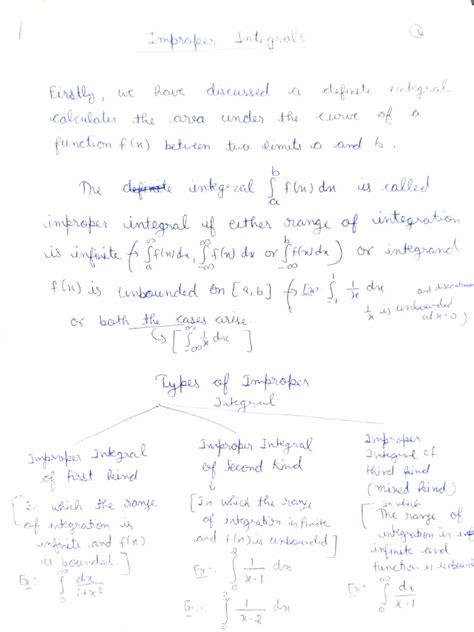 Improper Integrals
Firstly, we have discussed a definite integral
calculates the area under the curve of a
function f(x) between two limits a and b.
The definite integral ∫_a^b f(x) dx is called
improper integral if either range of integration
is infinite (→ ∫_a^∞ f(x) dx, ∫_{-∞}^∞ f(x) dx or ∫_{-∞}^b f(x) dx) or integrand
f(x) is unbounded on [a, b] (→ Ex: ∫_{-1}^1 1/x dx
1/x is unbounded
at x=0)
or both the cases arise
↳ [∫_{-∞}^∞ 1/x dx]
Types of Improper
Integral
Improper Integral
of first kind
[In which the range
of integration is
infinite and f(x)
is bounded]
Ex:- ∫_0^∞ dx/(1+x²)
Improper Integral
of second kind
[In which the range
of integration is finite
and f(x) is unbounded]
Ex:- ∫_0^2 1/(x-1) dx
Ex:- ∫_0^2 1/(x-2) dx
Improper
Integral of
third kind
(mixed kind)
[in which
The range of
integration is
infinite and
function is unbounded]
Ex:- ∫_0^∞ dx/(x-1)